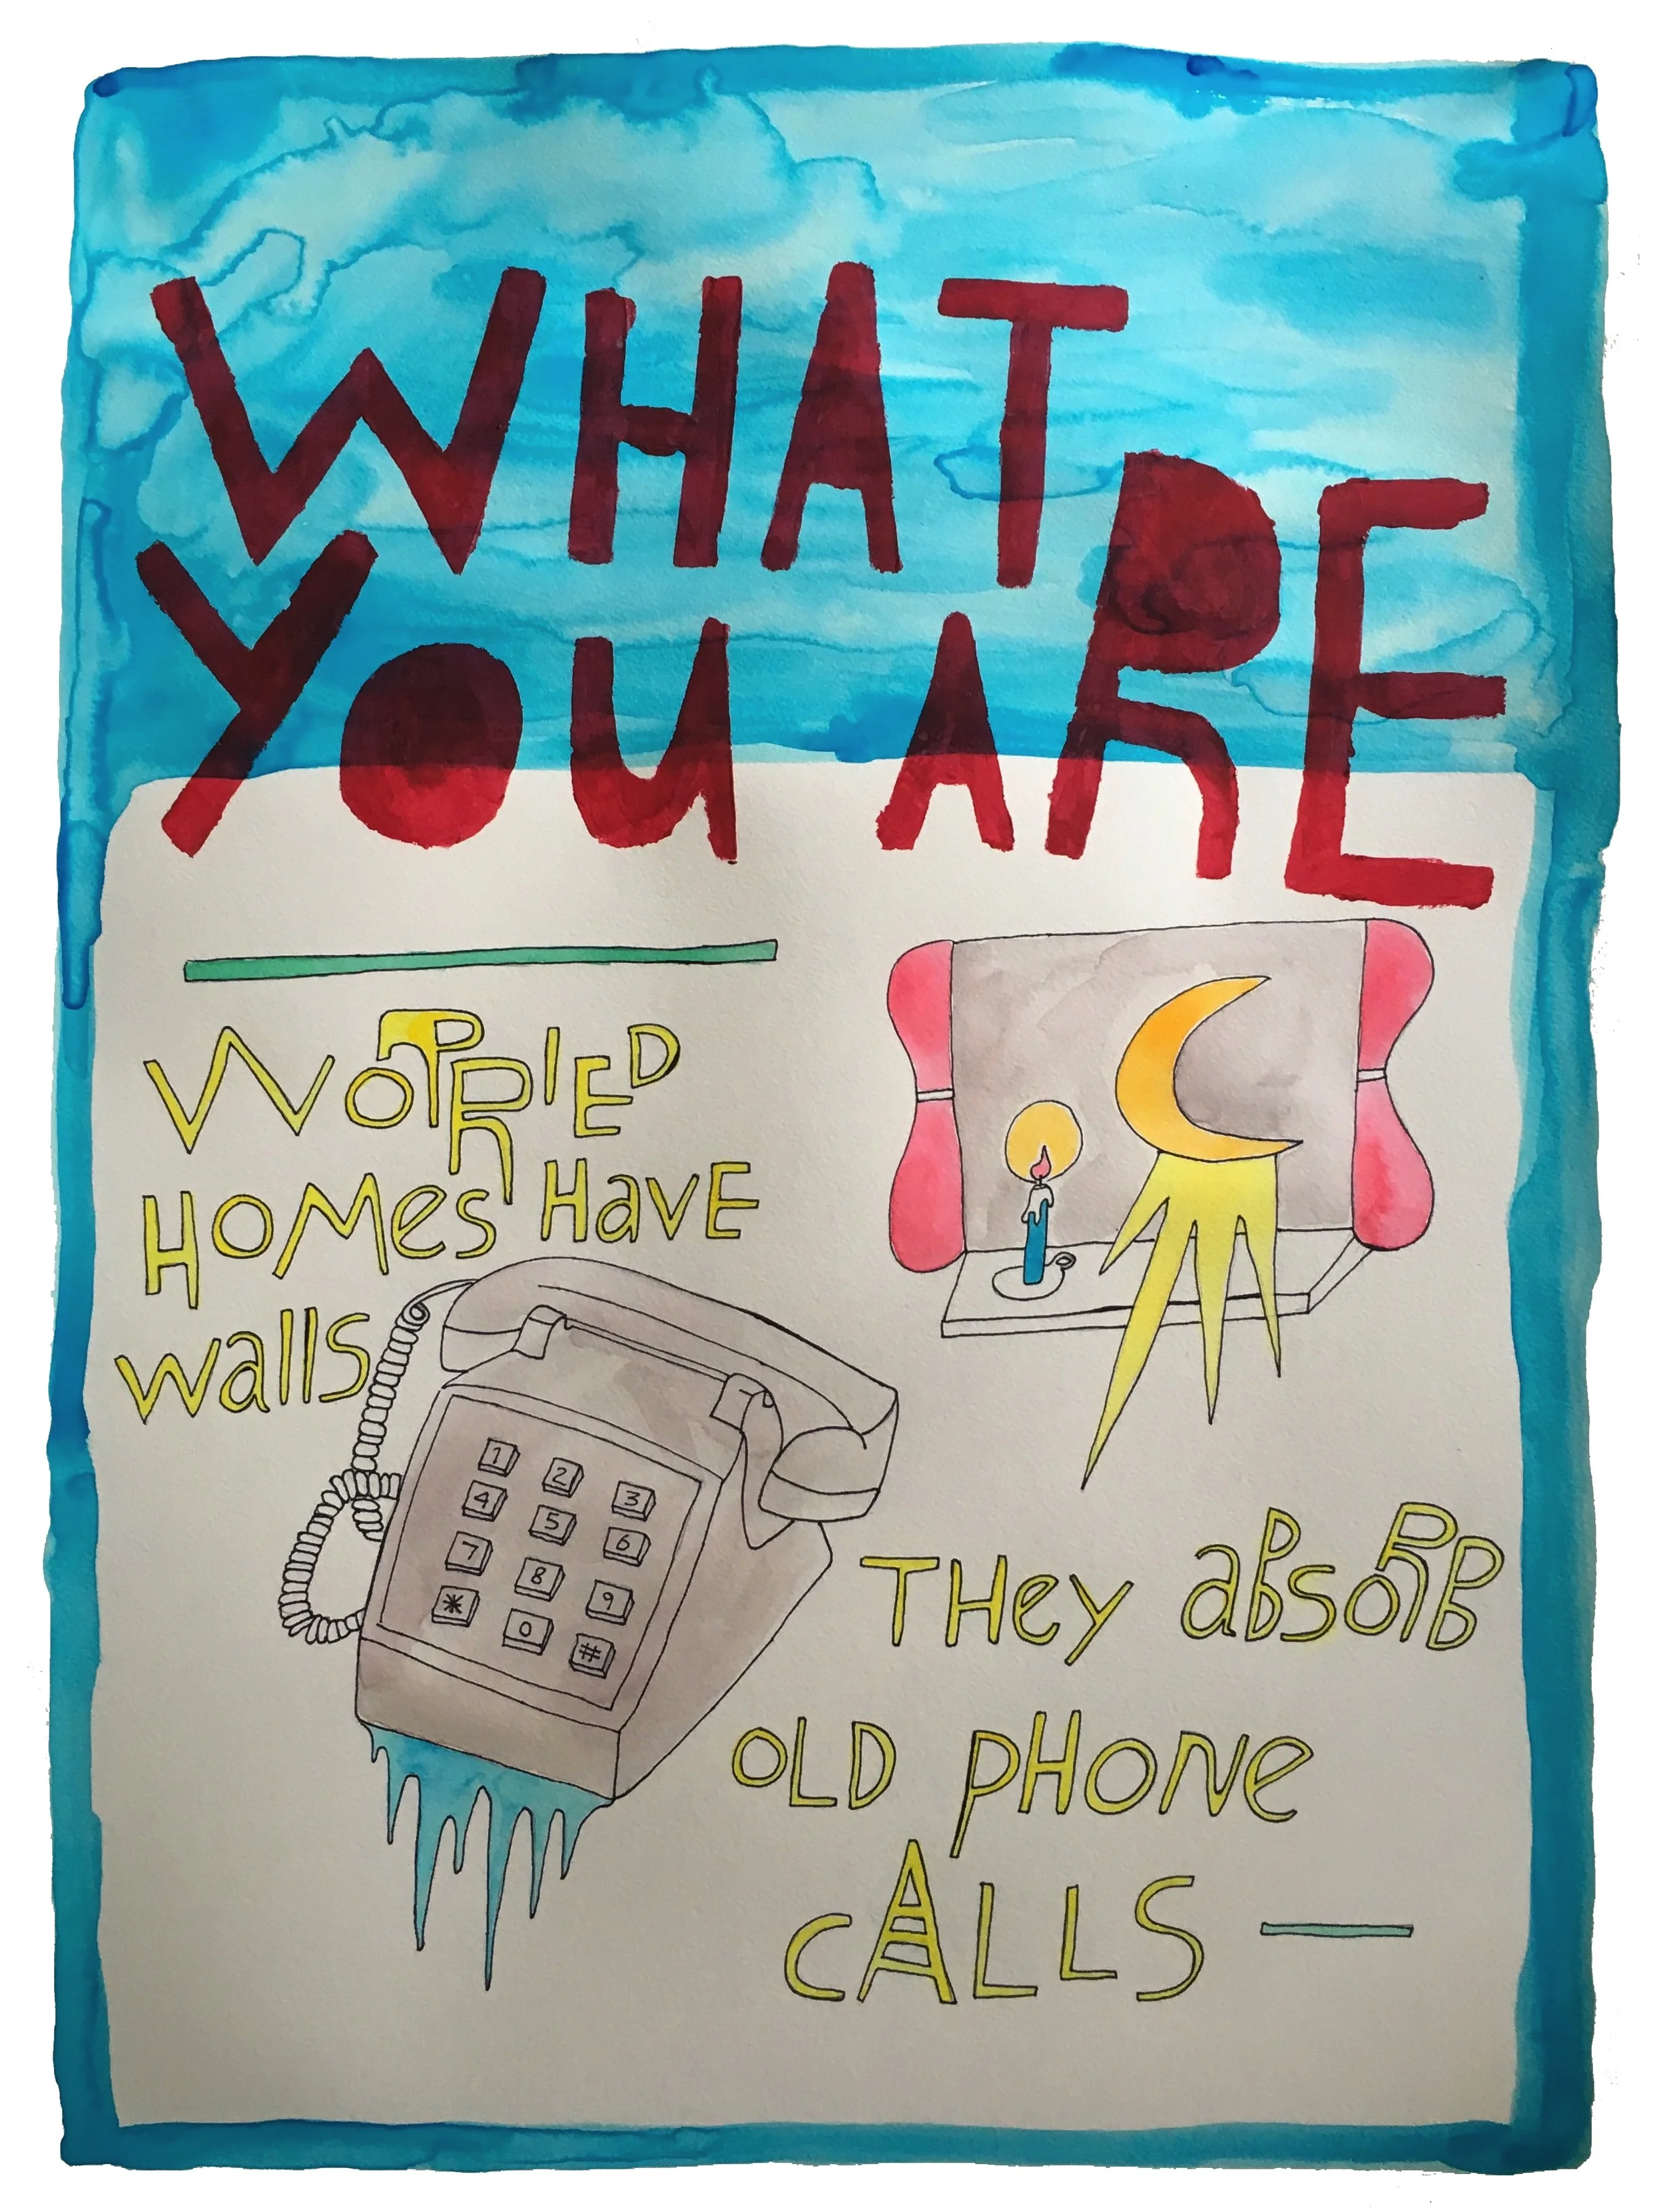 WHAT
YOU ARE
WORRIED
HOMes HavE
walls
1 2 3
4 5 6
7 8 9
* 0 #
THey aBsoRB
OLD pHONe
cALLS —